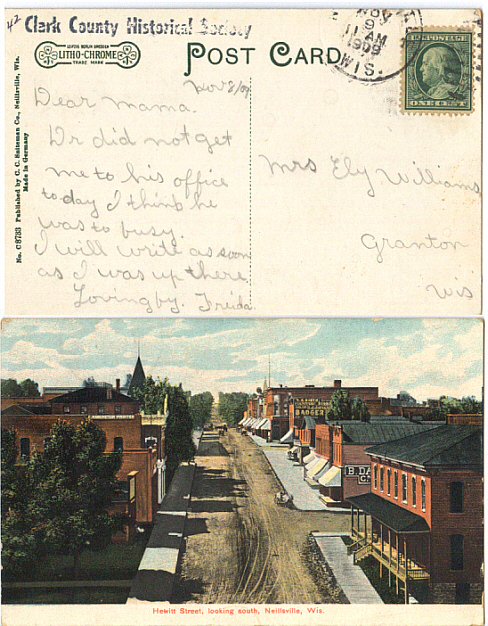 42 Clark County Historical Society
LITHO-CHROME
TRADE MARK
POST CARD
NOV
9
11 AM
1909
WIS.
U.S. POSTAGE
ONE CENT
No. C8733 Published by C. C. Sniteman Co., Neillsville, Wis.
Made in Germany
Nov 8/09
Dear mama.
Dr did not get
me to his office
today I think he
was to busy.
I will write as soon
as I was up there
Lovingby. Freida
Mrs Ely Williams
Granton
Wis
Hewitt Street, looking south, Neillsville, Wis.